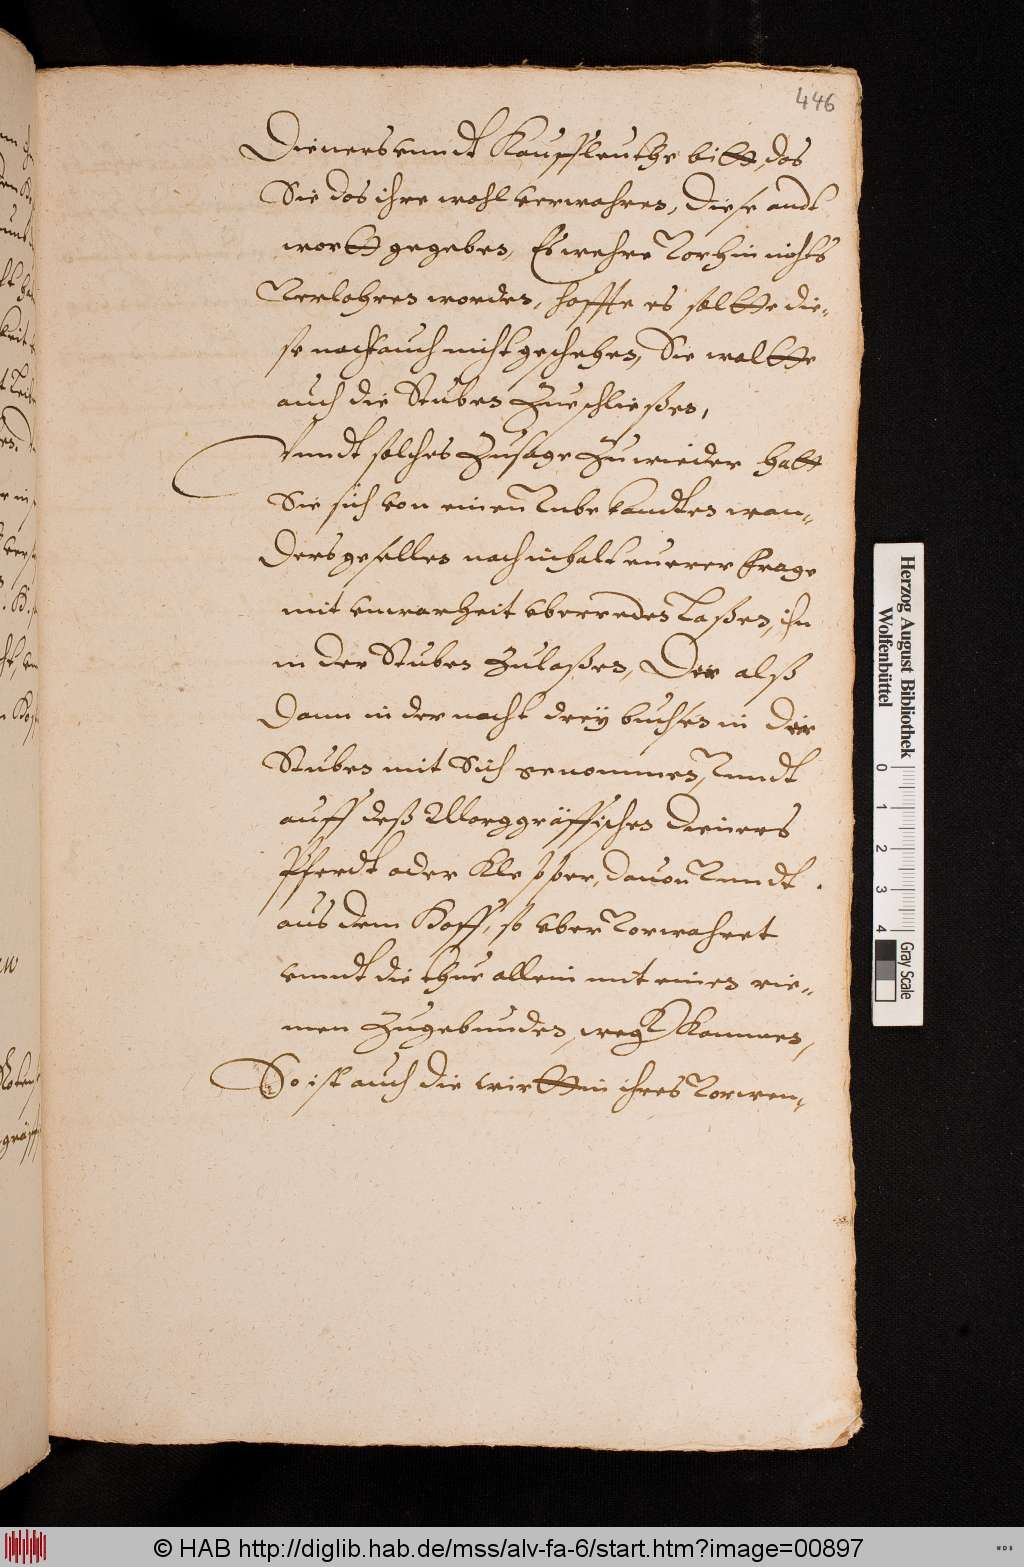 446
Dieners vnndt Kauffleuthe bitt, das
Sie das ihre wohl verwahren, diese andt
wortt gegeben, Es wehre Vorhin nichts
Verlohren worden, hoffte es soltte die-
se nacht auch nicht geschehen, Sie woltte
auch die Stuben Zueschließen,
Vnndt solches Zusage Zuwieder hatt
Sie sich von einen Vnbekandten wan-
dersgesellen nach inhalt euerer frage
mit vnwarheit vberreden laßen, ihn
in der Stuben Zulaßen, Der alß
dann in der nacht dreÿ buchsen in der
Stuben mit Sich genommen, Vnndt
auff deß Marggräffischen dieners
Pferdt oder Klepper, dauon Vnndt
aus dem Hoff, so vber Vorwahret
vnndt die thue allein mit einen rie-
men Zugebunden, wegk kommen,
So ist auch die wirttin ihres Vorwen-
Herzog August Bibliothek
Wolfenbüttel
0 1 2 3 4
Gray Scale
© HAB http://diglib.hab.de/mss/alv-fa-6/start.htm?image=00897